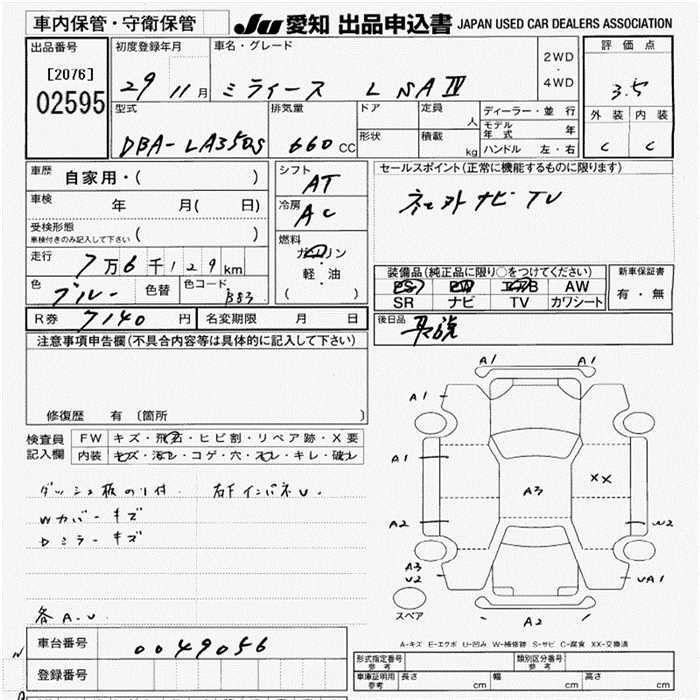 車内保管・守衛保管
JU 愛知 出品申込書 JAPAN USED CAR DEALERS ASSOCIATION
出品番号
[2076]
02595
初度登録年月
29 11月
車名・グレード
ミライース L SAⅣ
2WD
・
4WD
評価点
3.5
外装 内装
C C
型式
DBA-LA350S
排気量
660 CC
ドア
形状
定員
人
積載
kg
ディーラー・並行
モデル年式 年
ハンドル 左・右
車歴 自家用・( )
車検 年 月( 日)
受検形態
車検付きのみ記入して下さい ( )
走行 7万6千129km
色 ブルー 色替 色コード B83
シフト
AT
冷房
AC
燃料
ガソリン
・
軽・油
( )
セールスポイント(正常に機能するものに限ります)
社外ナビTV
装備品(純正品に限り○をつけてください)
PS PW エアB AW
SR ナビ TV カワシート
新車保証書
有・無
R券 7140円 名変期限 月 日
後日品
注意事項申告欄(不具合内容等は具体的に記入して下さい)
修復歴 有 〔箇所 〕
検査員
記入欄
FW キズ・飛石・ヒビ割・リペア跡・X要
内装 キズ・汚レ・コゲ・穴・スレ・キレ・破レ
ダッシュ板のり付. 右下インパネU.
Wカバーキズ
Dミラーキズ
各A.U.
A1 A1
A1 A1
A1
XX
A3
A2 W2
A3
U2
UA1
スペア
A2
A-キズ E-エクボ U-凹み W-補修跡 S-サビ C-腐食 XX-交換済
車台番号 0049056
登録番号
形式指定番号
参考
類別区分番号
参考
車庫証明用
参考
長さ cm 幅 cm 高さ cm